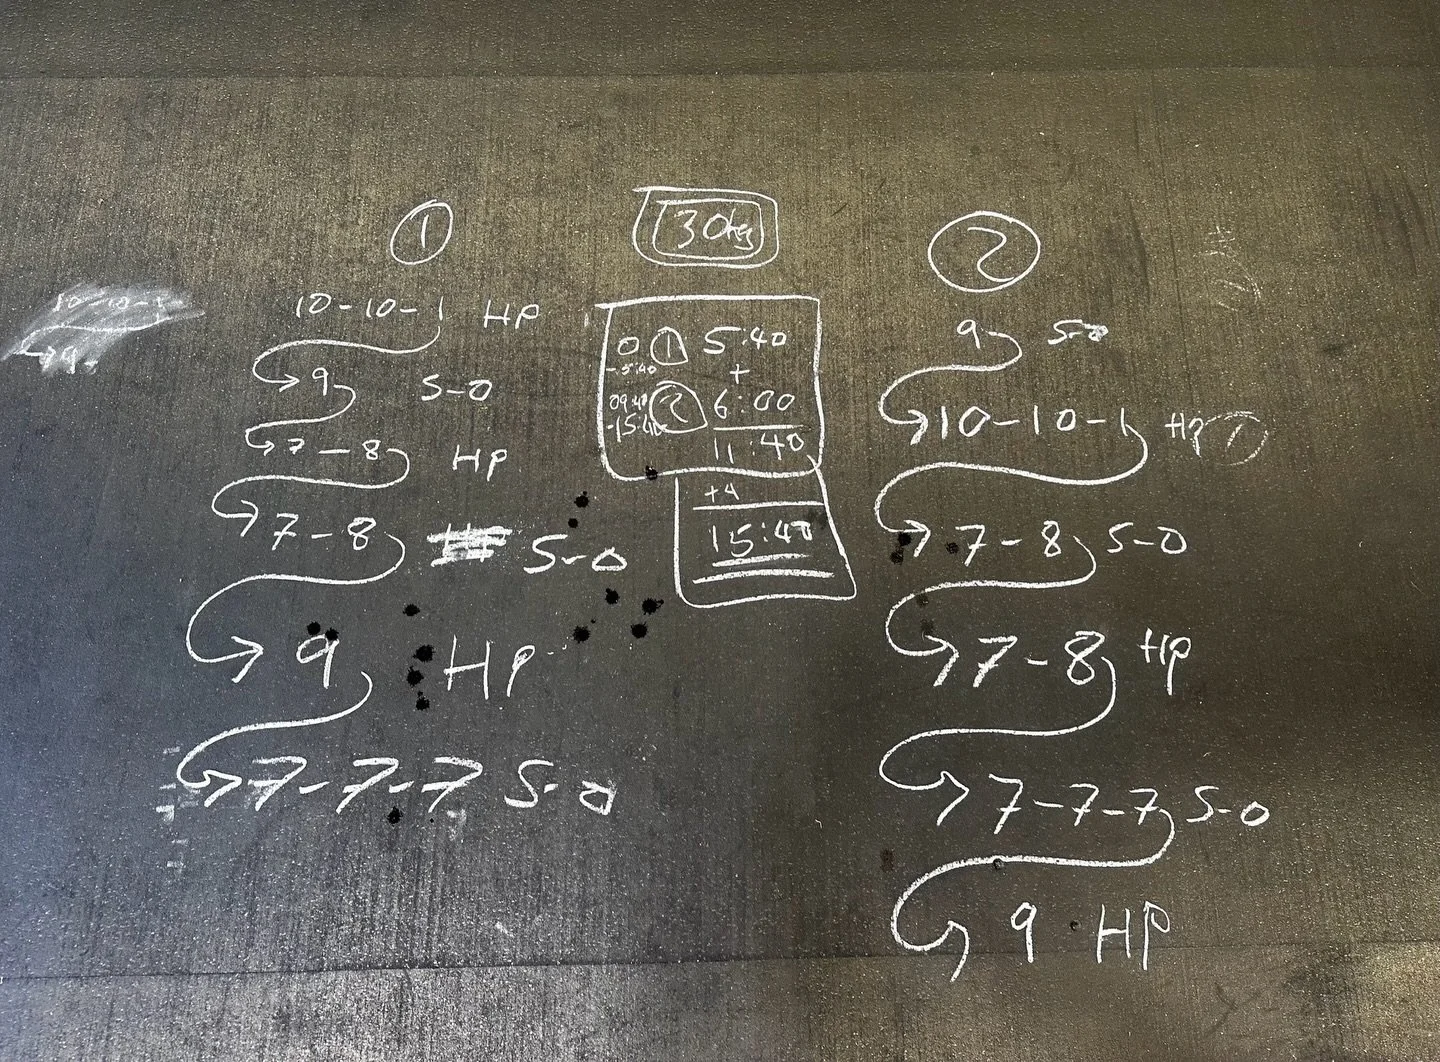 ①
10-10-1 HP
9 S-O
7-8 HP
7-8 S-O
9 HP
7-7-7 S-O
30kg
0 ① 5:40
-5:40 +
09:40 ② 6:00
-15:40 11:40
+4
15:40
②
9 S-O
10-10-1 HP ①
7-8 S-O
7-8 HP
7-7-7 S-O
9 HP